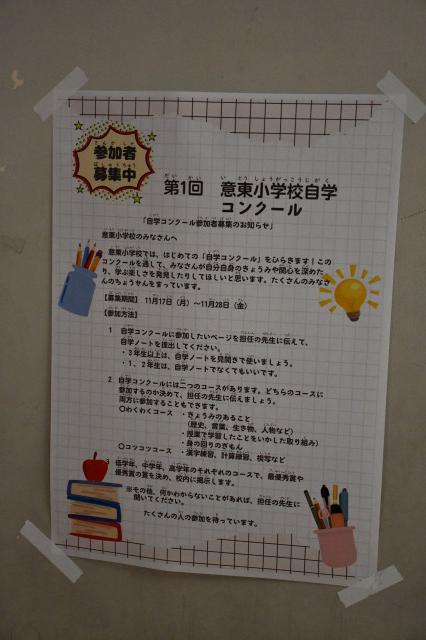 参加者
募集中
第1回 意東小学校自学
コンクール
「自学コンクール参加者募集のお知らせ」
意東小学校のみなさんへ
意東小学校では、はじめての「自学コンクール」をひらきます!この
コンクールを通して、みなさんが自分自身のきょうみや関心を深めた
り、学ぶ楽しさを発見したりしてほしいと思います。たくさんのみなさ
んのちょうせんをまっています。
【募集期間】 11月17日(月)~11月28日(金)
【参加方法】
1 自学コンクールに参加したいページを担任の先生に伝えて、
自学ノートを提出してください。
・3年生以上は、自学ノートを見開きで使いましょう。
・1、2年生は、自学ノートでなくてもいいです。
2 自学コンクールには二つのコースがあります。どちらのコースに
参加するのか決めて、担任の先生に伝えましょう。
両方に参加することもできます。
○わくわくコース ・きょうみのあること
(歴史、言葉、生き物、人物など)
・授業で学習したことをいかした取り組み)
・身の回りのぎもん
○コツコツコース ・漢字練習、計算練習、視写など
3 低学年、中学年、高学年のそれぞれのコースで、最優秀賞や
優秀賞の賞を決め、校内に掲示します。
※その他、何かわからないことがあれば、担任の先生に
聞いてください。
たくさんの人の参加を待っています。